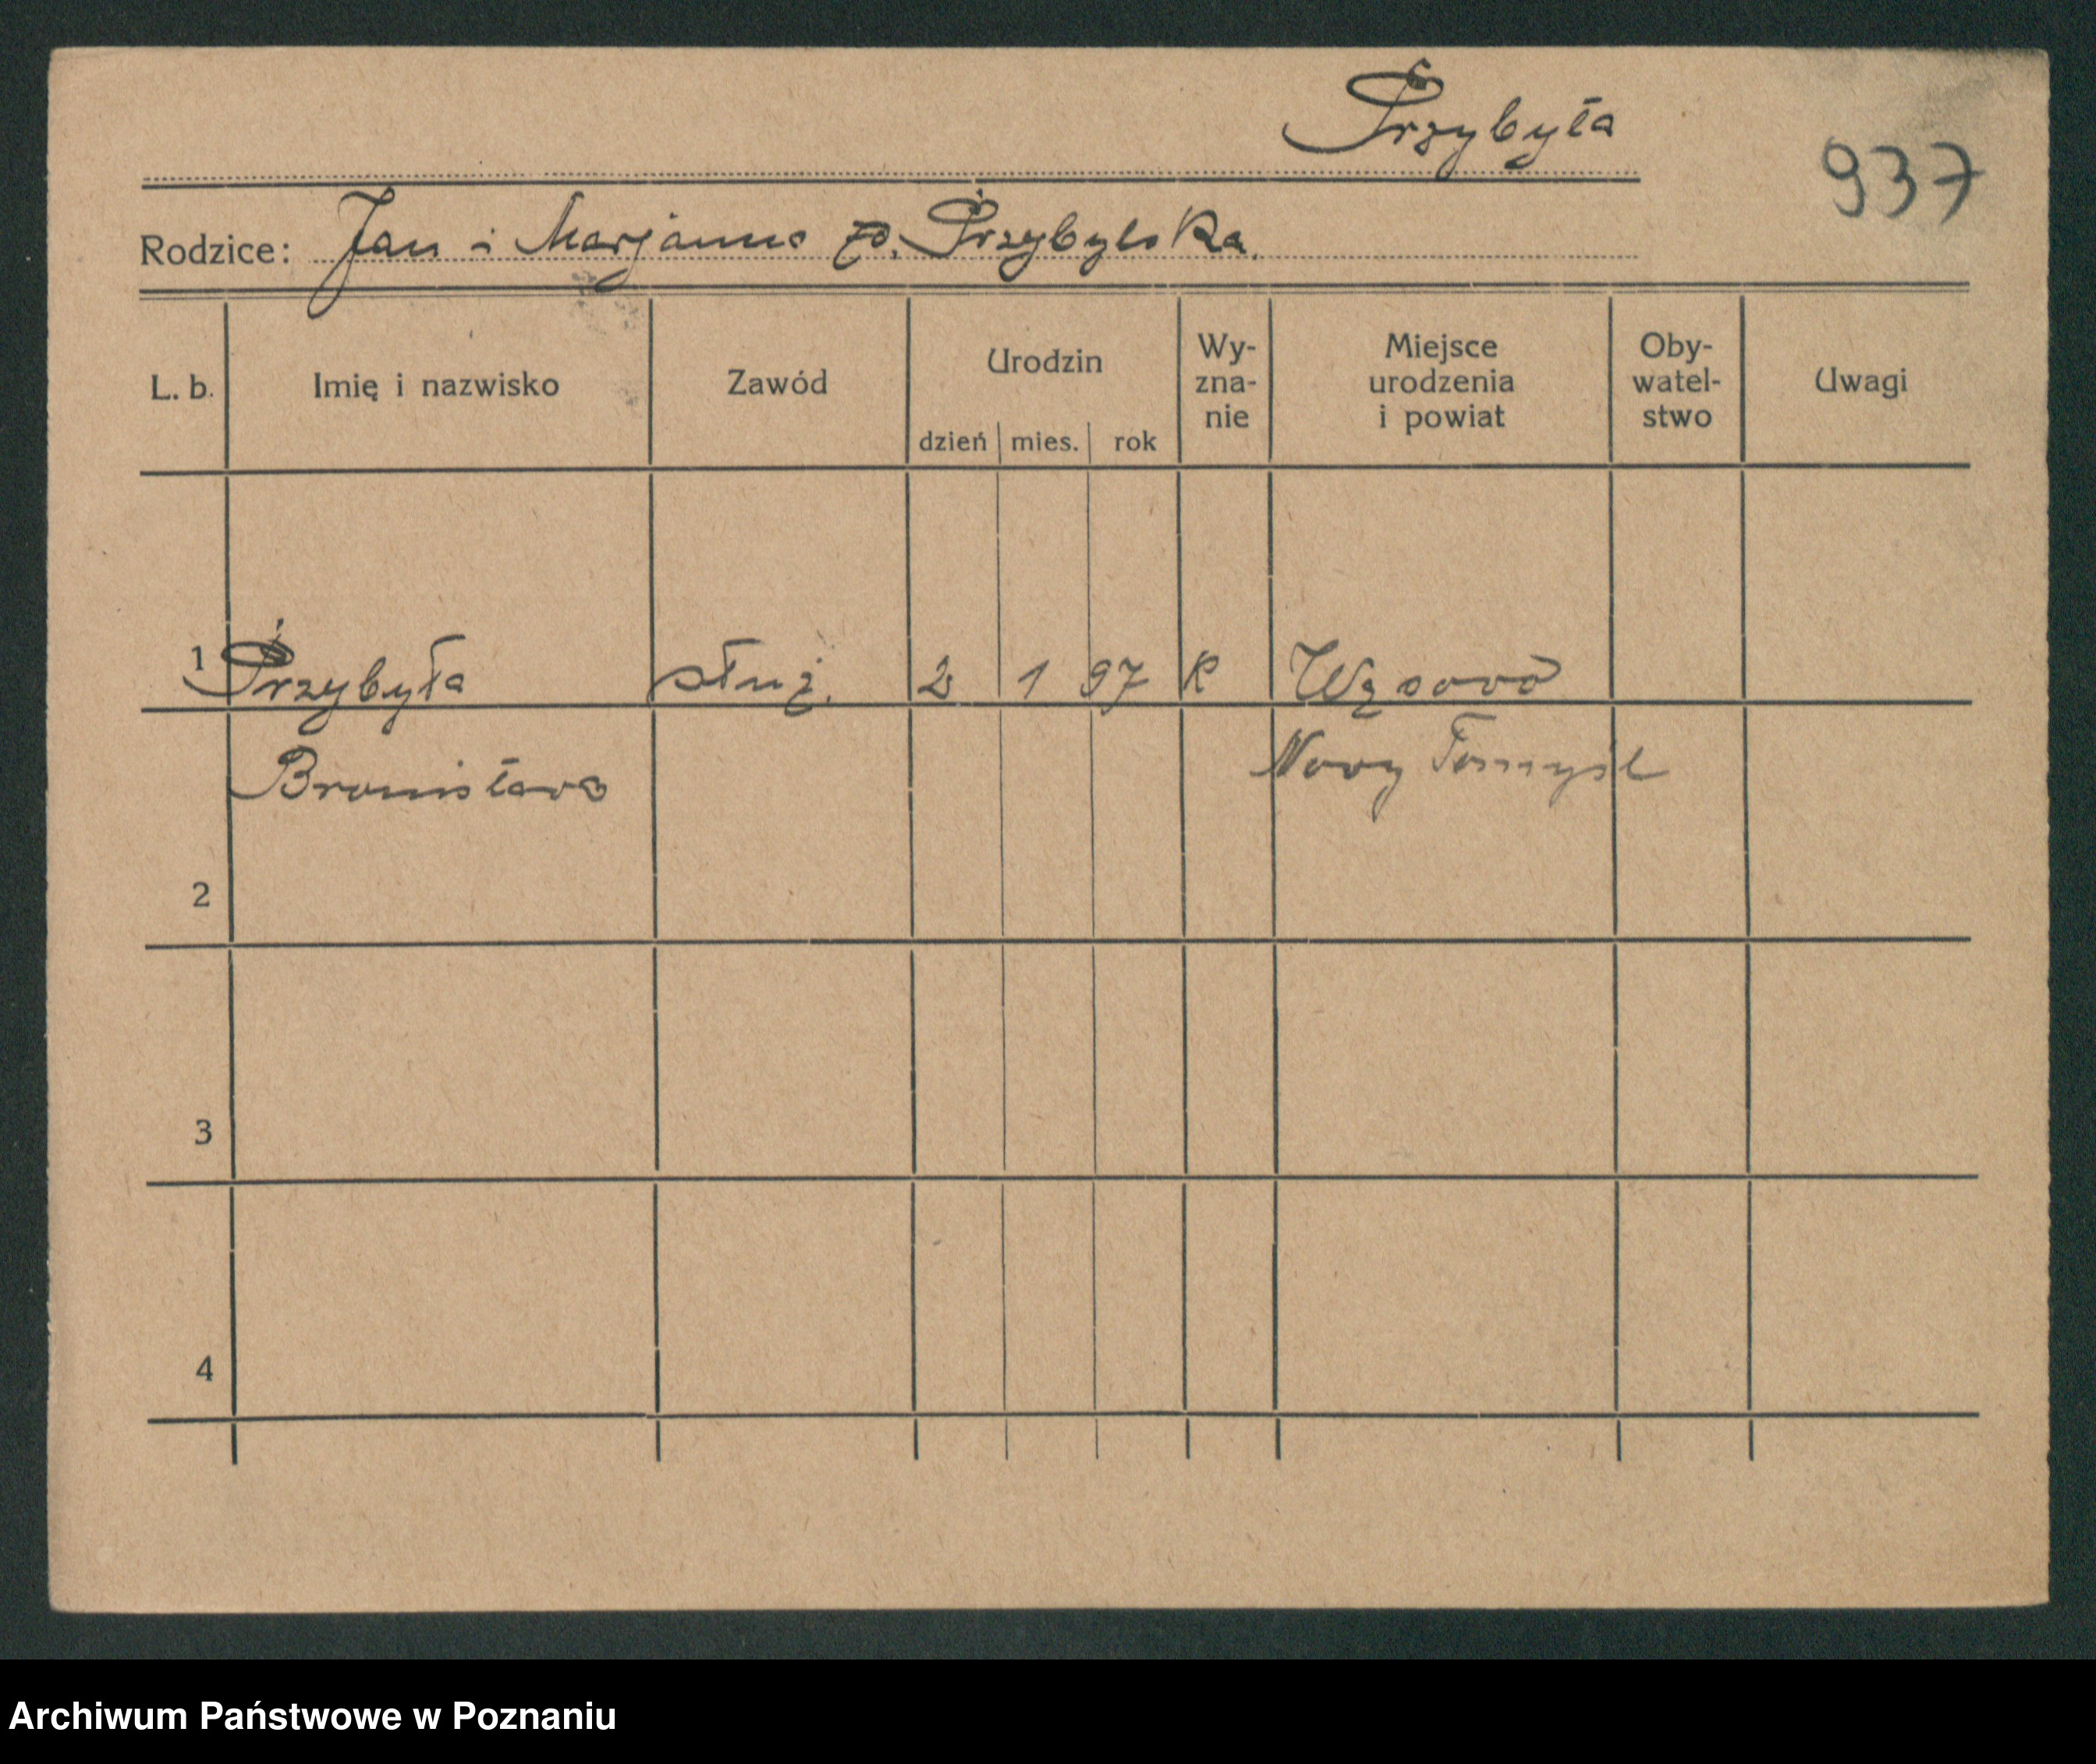 Przybyła
937
Rodzice: Jan i Marjanna z d. Przybylska.
L. b. Imię i nazwisko Zawód Urodzin dzień mies. rok Wy-zna-nie Miejsce urodzenia i powiat Oby-watel-stwo Uwagi
1 Przybyła służ. 2 1 97 R Wąsowo
Bronisława Nowy Tomyśl
2
3
4
Archiwum Państwowe w Poznaniu